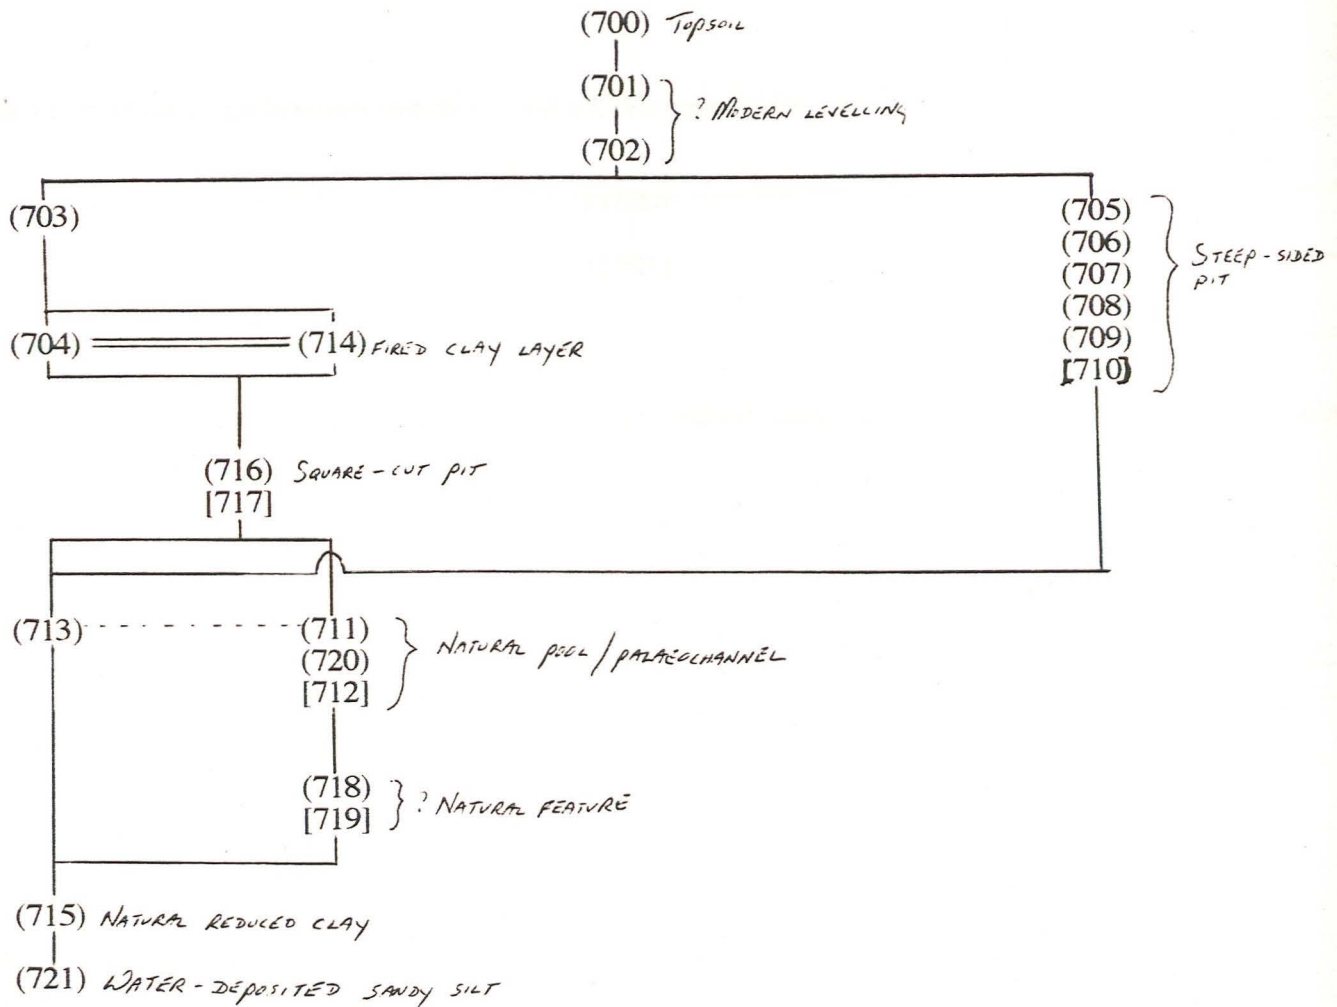 (700) TOPSOIL
(701)
? MODERN LEVELLING
(702)
(703)
(705)
(706)
(707)
(708)
(709)
[710]
STEEP-SIDED
PIT
(704) (714) FIRED CLAY LAYER
(716) SQUARE-CUT PIT
[717]
(713) (711)
(720)
[712]
NATURAL POOL/PALAEOCHANNEL
(718)
[719]
? NATURAL FEATURE
(715) NATURAL REDUCED CLAY
(721) WATER-DEPOSITED SANDY SILT